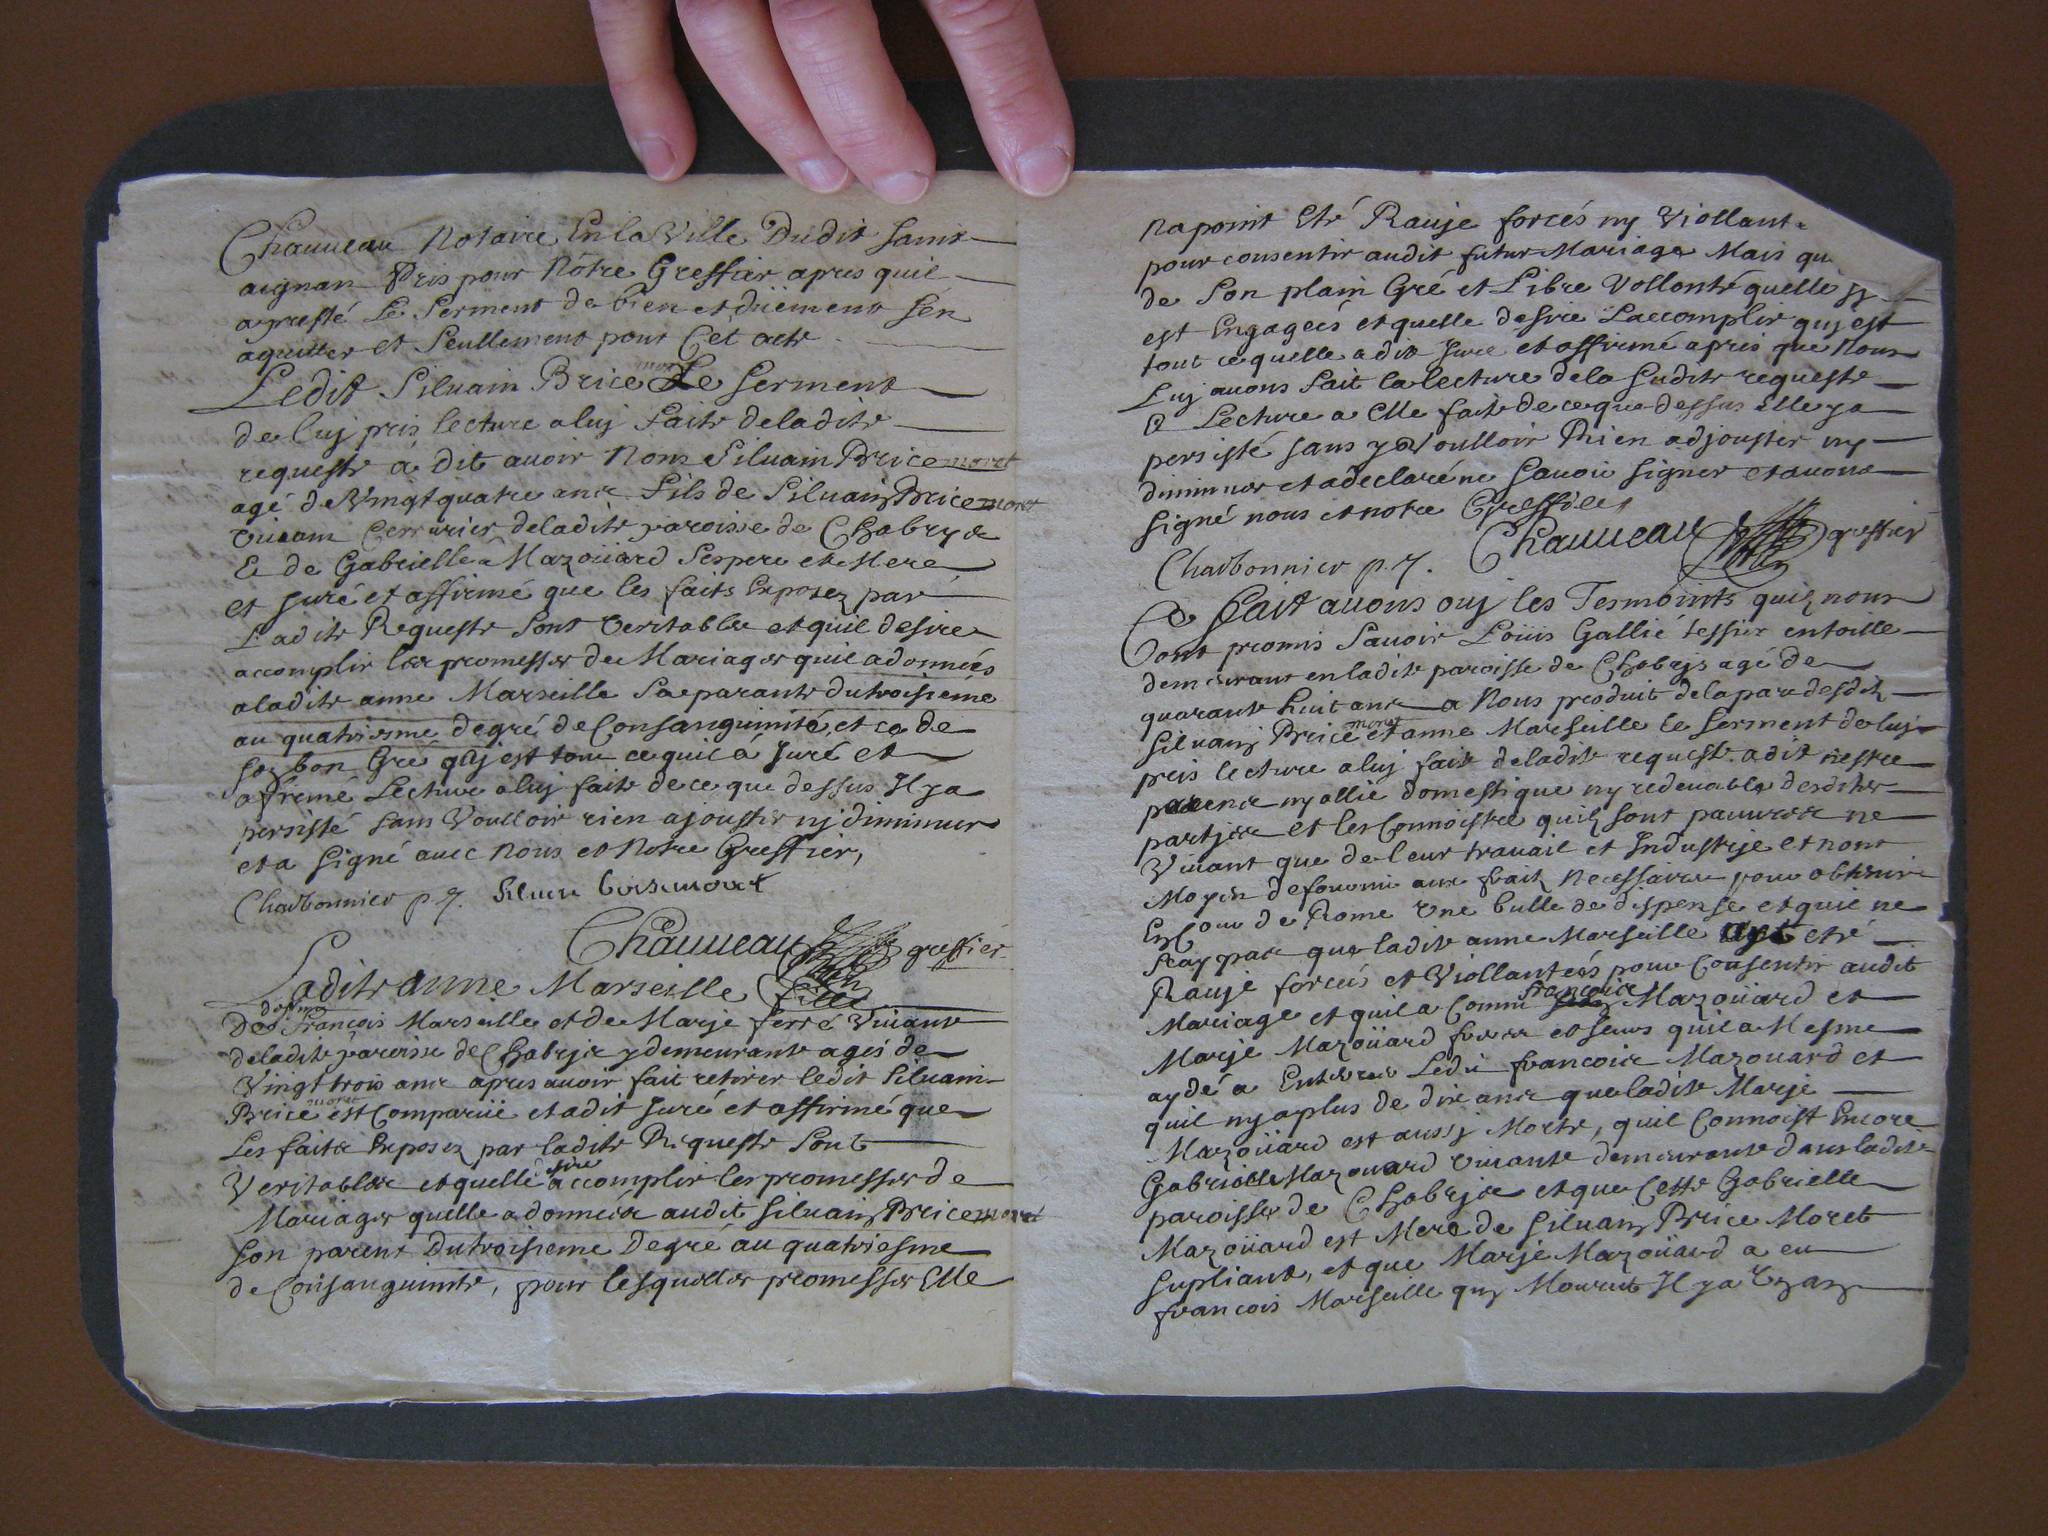 Chauueau Notaire En la Ville Dudit saint
aignan Pris pour Nôtre Greffier apres quil
a presté Le Serment de bien et düement sen
aquitter et Seullement pour Cet acte
Ledit Siluain Brice moret Le serment
de luy pris lecture a luy faite de ladite
requeste a dit auoir Nom Siluain Brice moret
agé de Vingt quatre ans fils de Siluain Brice moret
viuant Cerrurier de ladite paroisse de Chabrys
Et de Gabrielle Mazoüard Ses pere et Mere
et juré et affirmé que les faits Exposez par
Ladite Requeste Sont veritables et quil desire
accomplir les promesses de Mariages quil a données
a ladite anne Marseille Sa parante du troisieme
au quatriesme degré de Consanguinité, et ce de
son bon Gré quy est tout ce quil a juré et
afirmé Lecture a luy faite de ce que dessus Il y a
persisté sans Voulloir rien ajouster ny diminuer
et a signé auec Nous et Notre Greffier,
Charbonnier p. Siluin brisemoret
Chauueau greffier
Ladite anne Marseille fille
de deffunt François Marseille et de Marje ferré Viuant
de ladite paroisse de Chabrjs y demeurante ageé de
Vingt trois ans apres auoir fait retirer ledit Siluain
Brice moret est Comparüe et a dit juré et affirmé que
Les faits Exposez par ladite Requeste Sont
Veritables et quelle desire accomplir les promesses de
Mariages quelle a données audit Siluain Brice moret
son parent Du troisieme Degré au quatriesme
de Consanguinité, pour lesquelles promesses Elle
na point Eté Rauje forcés ny Viollant
pour consentir audit futur Mariage Mais qu
de Son plain Gré et Libre Vollonté quelle sy
est Engageés et quelle desire Laccomplir quy est
tout ce quelle a dit juré et affirmé apres que Nous
Luy auons fait la lecture de la Sudite requeste
& Lecture a Elle faite de ce que dessus Elle y a
persisté sans y Voulloir Rien adjouster ny
diminuer et a declaré ne Sauoir signer et auons
signé nous et notre Greffier
Charbonnier p. Chauueau greffier
Ce fait auons ouj les Tesmoints quilz nous
ont promis Sauoir Loüis Gallié tessier en toille
demeurant en ladite paroisse de Chabrjs agé de
quarante huit ans a Nous produit de la par desditz
Siluain Brice moret et anne Marseille le serment de luy
pris lecture a luy faite de ladite requeste a dit nestre
parens ny allié domestique ny redeuable desdites
partjes et les Connoistre quilz sont pauures ne
Viuant que de leur trauail et Industrje et nont
Moyen de fournir aux fraiz Necessaires pour obtenir
En Cour de Rome Vne bulle de dispense et quil ne
scay pas que ladite anne Marseille ayt eté
Rauje forcés et Viollanteés pour Consentir audit
Mariage et quil a Connu francois Mazoüard et
Marje Mazoüard freres et seurs quil a Mesme
aydé a Enterrer Ledit francois Mazouard et
quil ny a plus de dix ans que ladite Marje
Mazoüard est aussj Morte, quil Connoist Encore
Gabrielle Mazouard viuante demeurante dans ladite
paroisse de Chabrjs et que Cette Gabrielle
Mazoüard est Mere de Siluain Brice Moret
supliant, et que Marje Mazoüard a eu
francois Marseille quy Mourut Il y a